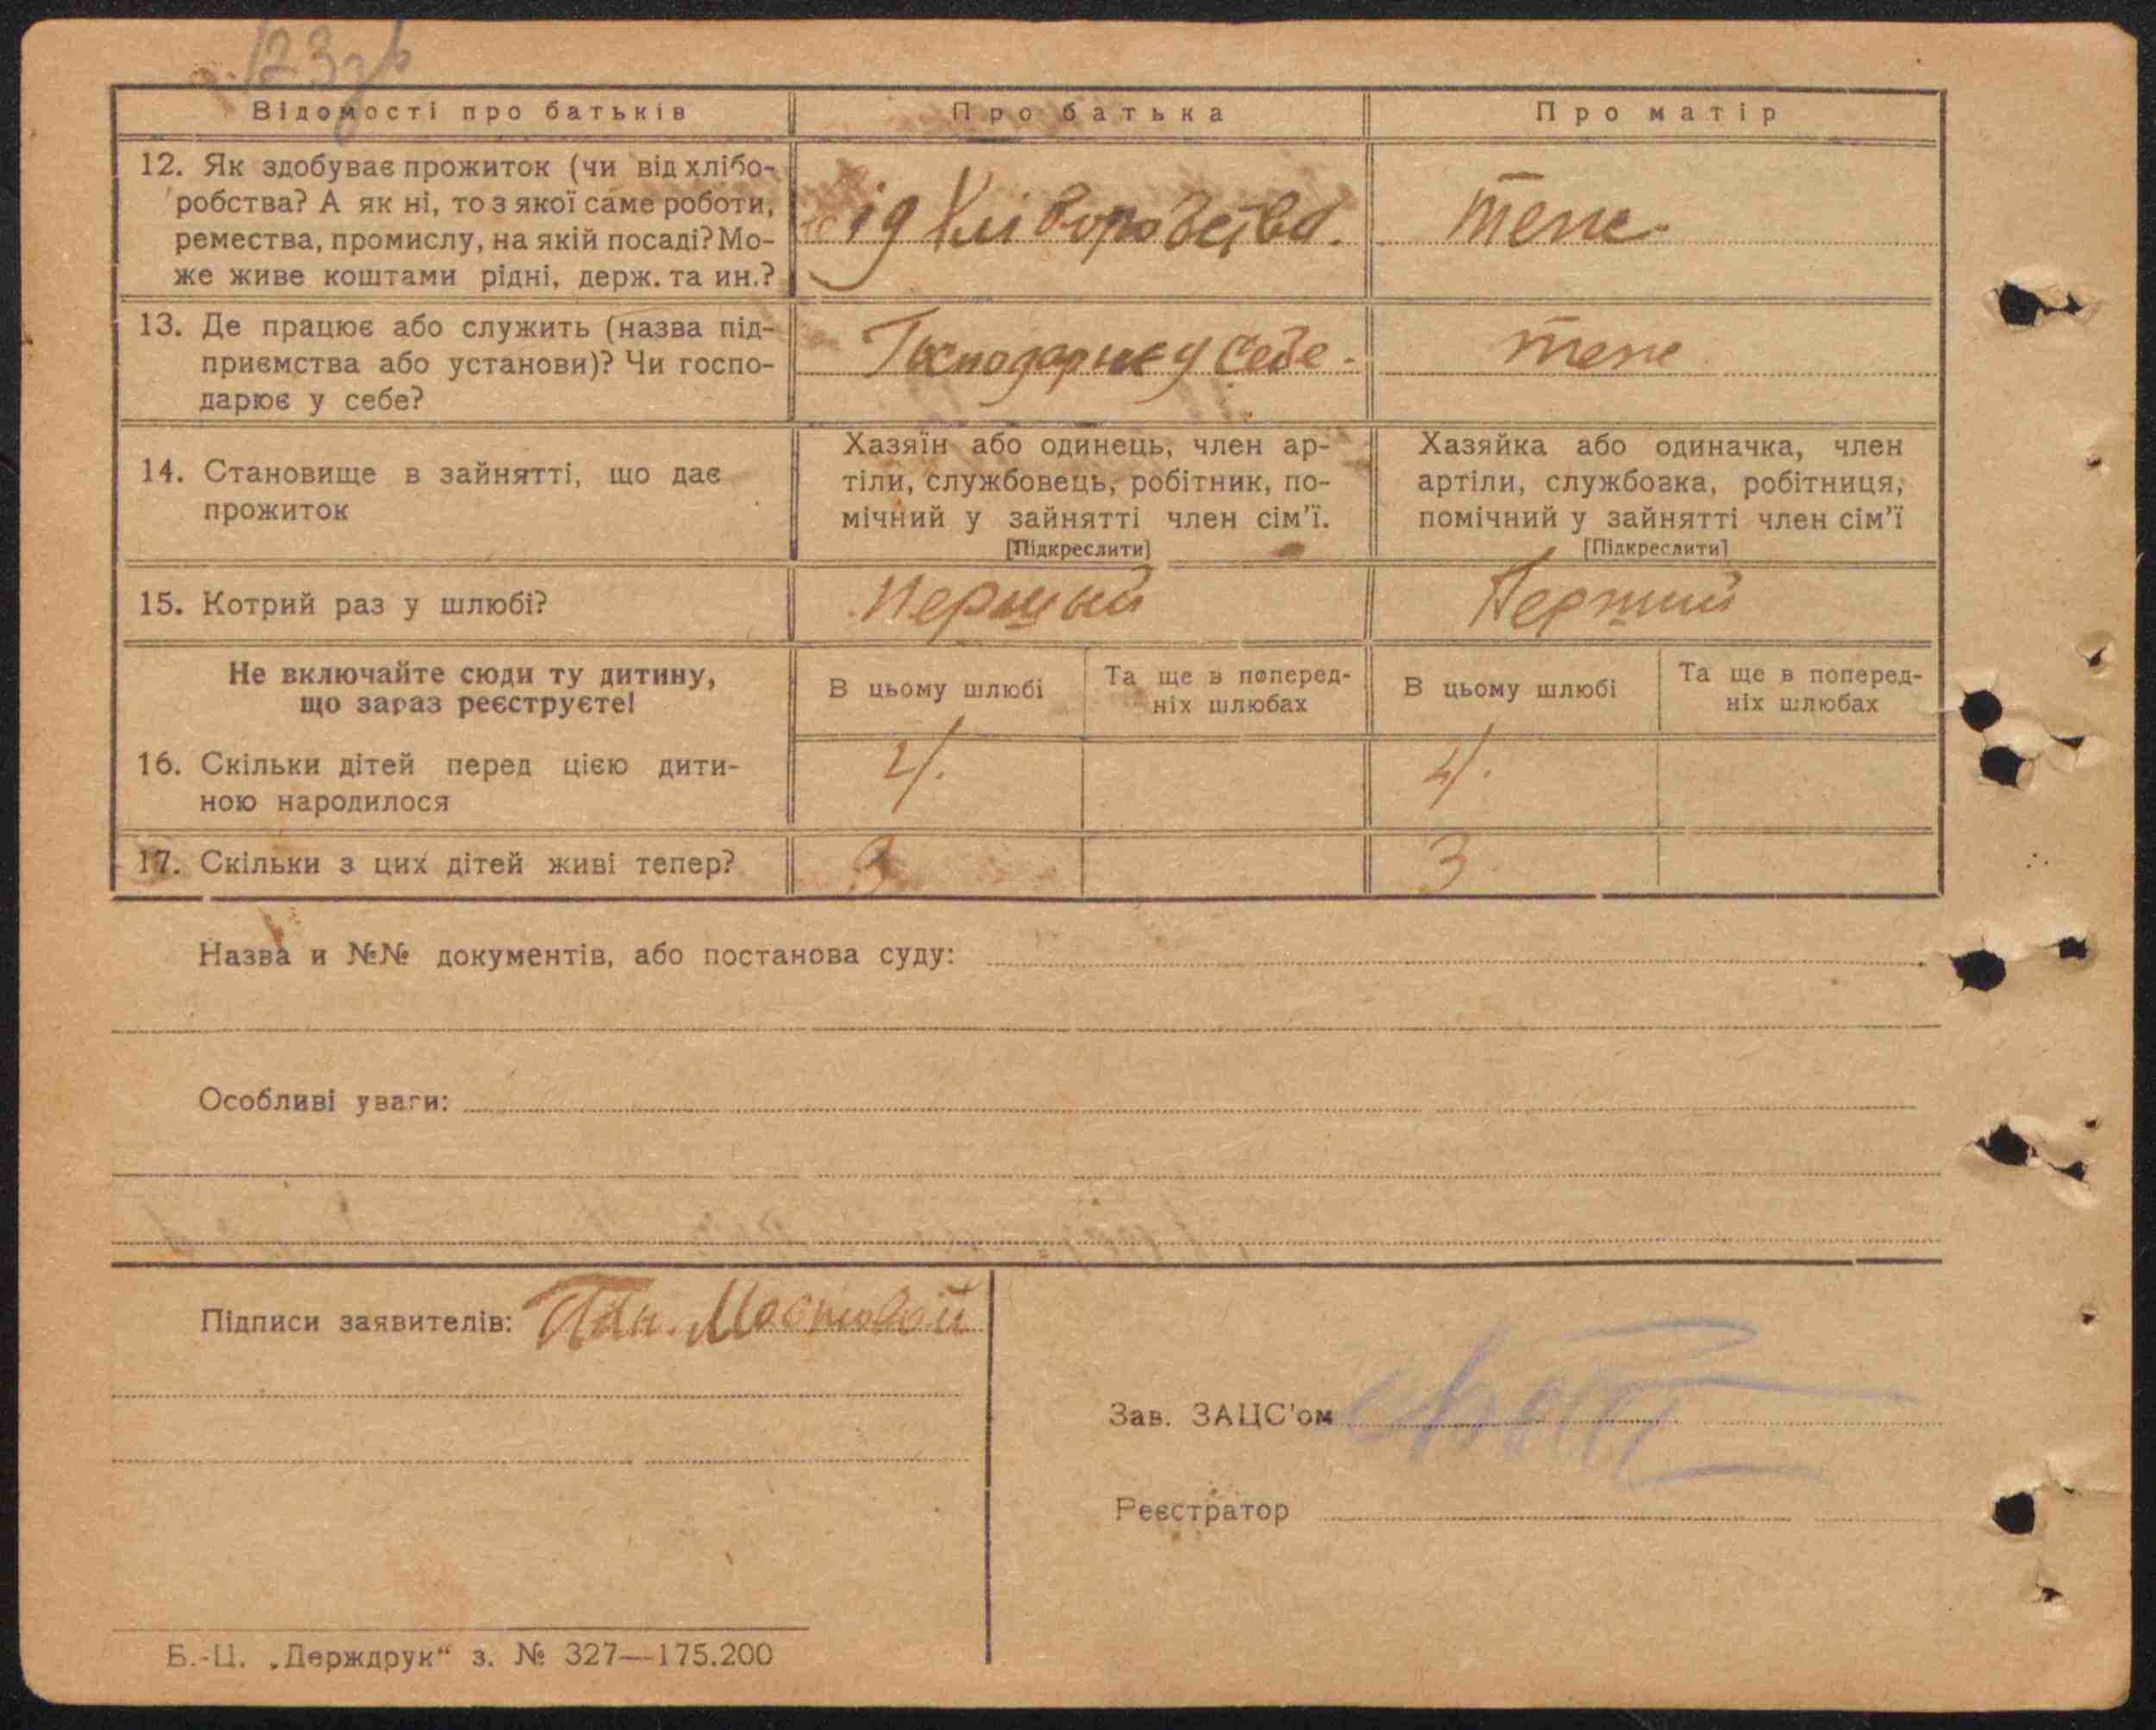 123зв
Відомості про батьків
Про батька
Про матір
12. Як здобуває прожиток (чи від хлібо-
робства? А як ні, то з якої саме роботи,
ремества, промислу, на якій посаді? Мо-
же живе коштами рідні, держ. та ин.?
від хліборобства.
теж.
13. Де працює або служить (назва під-
приємства або установи)? Чи госпо-
дарює у себе?
Господарює у себе.
теж
14. Становище в зайнятті, що дає
прожиток
Хазяїн або одинець, член ар-
тіли, службовець, робітник, по-
мічний у зайнятті член сім'ї.
[Підкреслити]
Хазяйка або одиначка, член
артіли, службовка, робітниця,
помічний у зайнятті член сім'ї
[Підкреслити]
15. Котрий раз у шлюбі?
Першый
Перший
Не включайте сюди ту дитину,
що зараз реєструєте!
В цьому шлюбі
Та ще в поперед-
ніх шлюбах
В цьому шлюбі
Та ще в поперед-
ніх шлюбах
16. Скільки дітей перед цією дити-
ною народилося
4.
4.
17. Скільки з цих дітей живі тепер?
3
3
Назва и №№ документів, або постанова суду:
Особливі уваги:
Підписи заявителів:
Мостовой
Зав. ЗАЦС'ом
Реєстратор
Б.-Ц. „Держдрук“ з. № 327—175.200